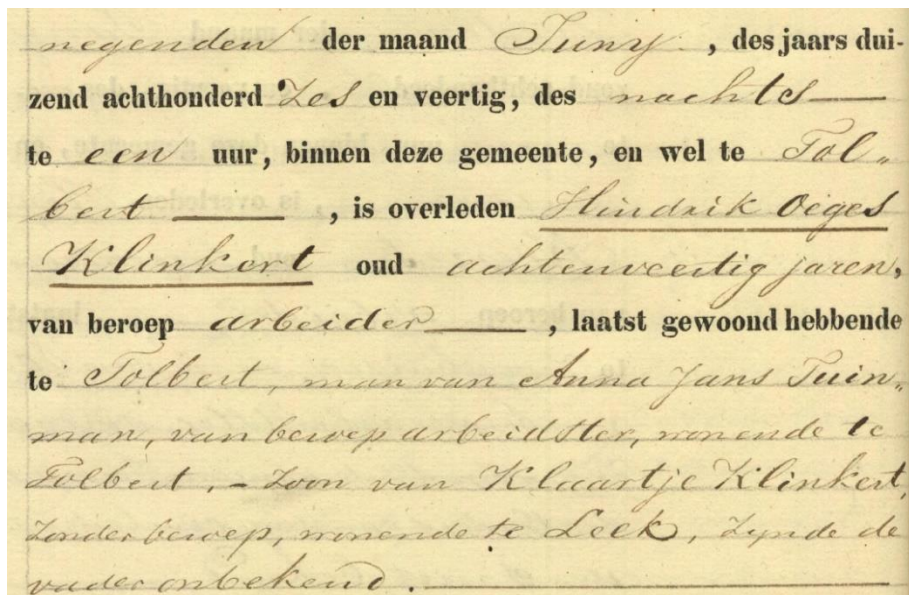 negenden der maand Juny, des jaars dui-
zend achthonderd Zes en veertig, des nachts
te een uur, binnen deze gemeente, en wel te Tol„
bert , is overleden Hindrik Oeges
Klinkert oud achtenveertig jaren,
van beroep arbeider , laatst gewoond hebbende
te Tolbert, man van Anna Jans Tuin„
man, van beroep arbeidster, wonende te
Tolbert. – Zoon van Klaartje Klinkert,
zonder beroep, wonende te Leek, zynde de
vader onbekend.